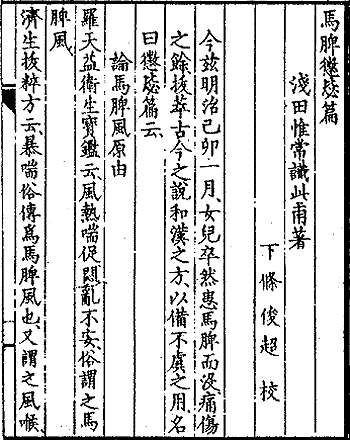 馬脾懲毖篇
淺田惟常識此甫著
下條俊超校
今玆明治己卯一月、女兒卒然患馬脾而沒痛傷
之餘拔萃古今之說和漢之方、以備不虞之用名
曰懲毖篇云、
論馬脾風原由
羅天益衛生寶鑑云、風熱喘促悶亂不安、俗謂之馬
脾風、
濟生拔粹方云、暴喘俗傳爲馬脾風也、又謂之風喉、